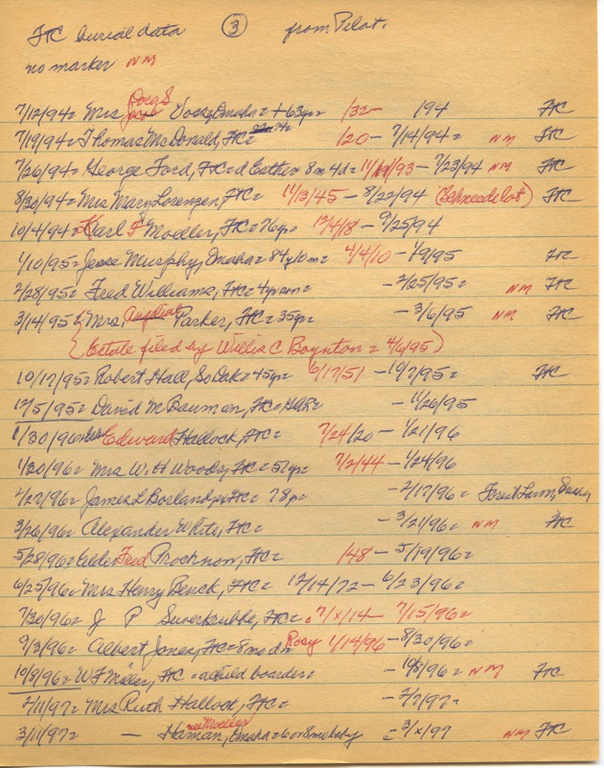 FtC burial data ③ from Pilot.
no marker NM
7/12/94= Mrs Voss, Omaha= +63yr= 1/32- 194 FtC
7/19/94= Thomas McDonald, FtC= 1/20- 7/14/94= NM FtC
7/26/94= George Ford, FtC=d Esther 8m 4d= 11/19/93- 7/23/94 NM FtC
8/30/94= Mrs Mary Lorenzen, FtC= 11/13/45 - 8/22/94 FtC
10/4/94= Karl F Moeller, FtC= 76yr= 12/4/18- 9/25/94
1/10/95= Jesse Murphy, Omaha= 84y10m= 4/4/10 - 1/9/95 FtC
2/28/95= Fred Williams, FtC= 4yr son= -2/25/95= NM FtC
3/14/95= Mrs. Angeline Parker, FtC= 35yr= -3/6/95 NM FtC
(Estate filed by Willis C Boynton= 4/6/95)
10/17/95= Robert Hall, SoDak= 45yr= 6/17/51 - 10/7/95= FtC
12/5/95= David M Bauman, FtC= -11/26/95
1/30/96= Edward Hallock, FtC= 7/24/20 - 1/21/96
1/30/96= Mrs W. H Woods, FtC= 51yr= 7/2/44 - 1/24/96
2/27/96= James L Borland, FtC= 78yr= -2/17/96= Forest Lawn,
3/26/96= Alexander White, FtC= -3/21/96= NM FtC
5/28/96= Elder Fred Prochnow, FtC= 148- 5/19/96=
6/25/96= Mrs Henry Benck, FtC= 12/14/72- 6/23/96=
7/30/96= J P Suverkubbe, FtC= 7/x/14- 7/15/96=
9/3/96= Albert Jones, FtC= 8mo dr= Rosy 1/14/96 -8/30/96=
10/8/96= W F Miller, FtC= adult boarder= -10/8/96= NM FtC
2/11/97= Mrs Ruth Hallock, FtC= -2/7/97=
3/11/97= — Haman, née Moeller Omaha= 6 or 8mo baby -3/x/97 NM FtC